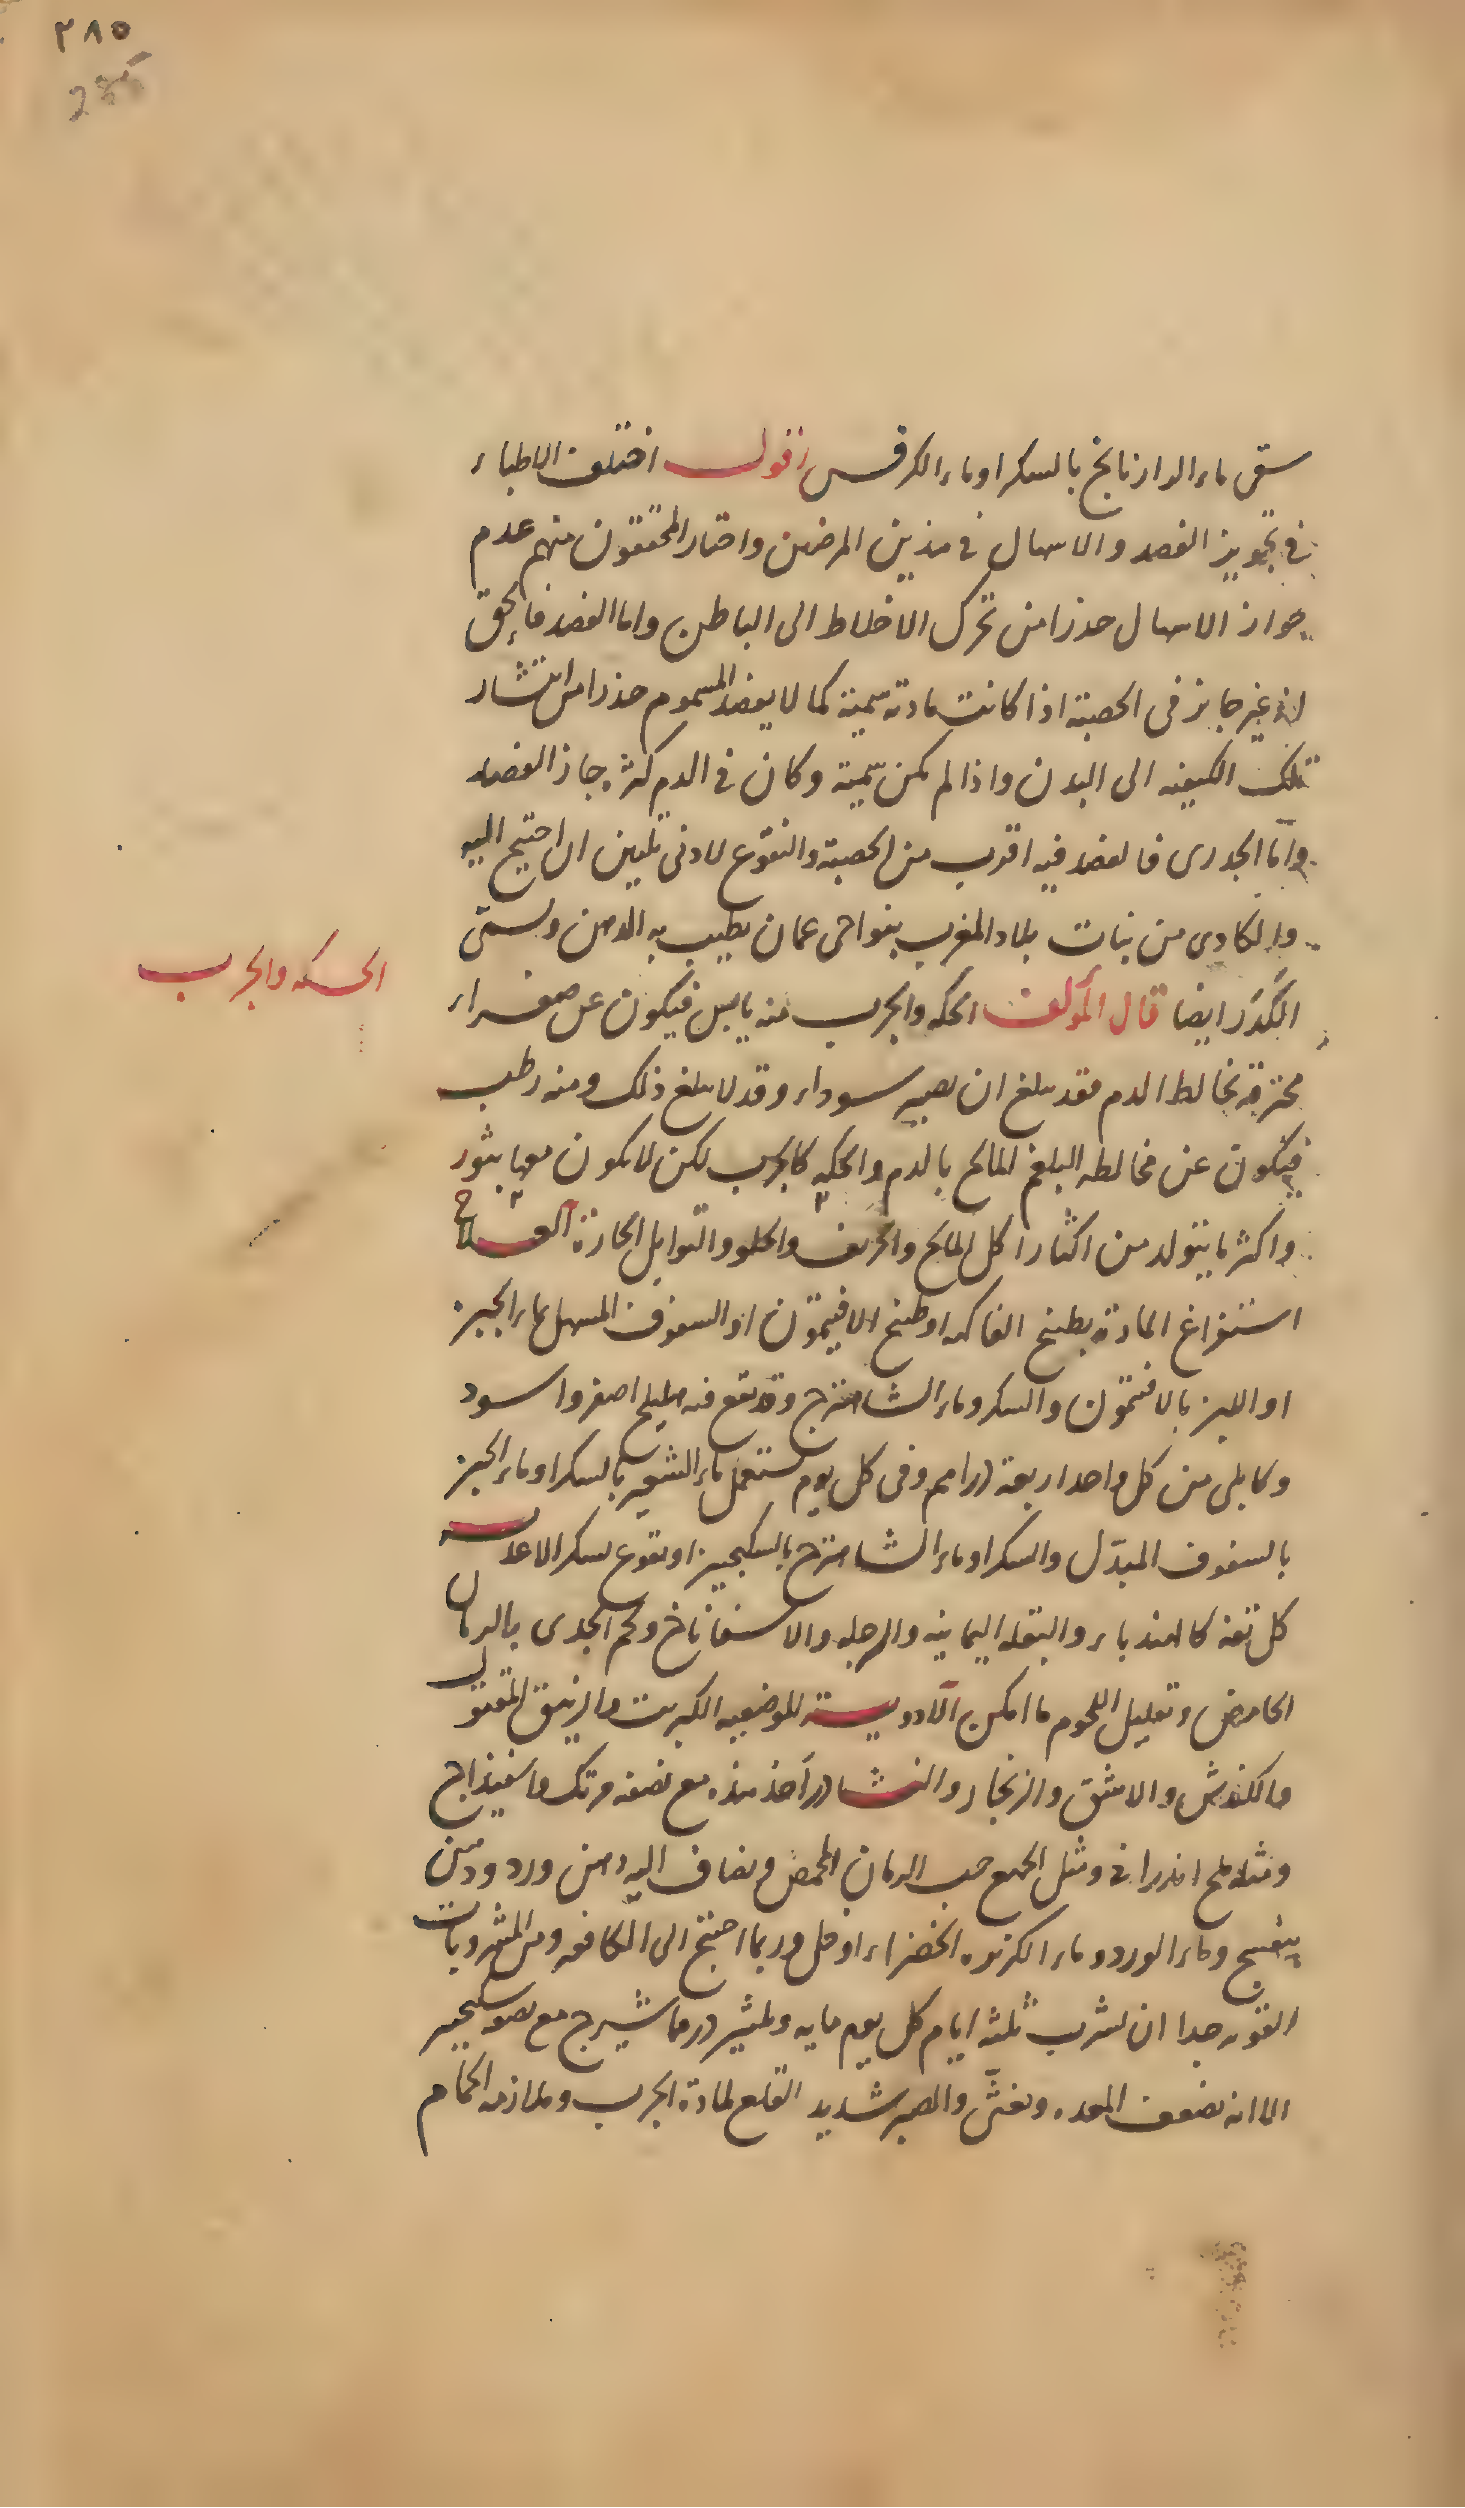 ٢٨٥
285
سقى ماء الرازيانج بالسكر او ماء الكرفس اقول اختلف الاطباء
في تجويز الفصد والاسهال في هذين المرضين واختار المحققون منهم عدم
جواز الاسهال حذرا من تحرك الاخلاط الى الباطن واما الفصد فالحق
انه غير جايز في الحصبة اذا كانت مادته سمية كما لا يفصد المسموم حذرا من انتشار
تلك الكيفيه الى البدن واذا لم تكن سمية وكان في الدم كثره جاز الفصد
واما الجدرى فالفصد فيه اقرب من الحصبة والنقوع لادنى تليين ان احتيج اليه
والكادى من نبات بلاد المغرب بنواحى عمان يطيب به الدهن ويسمى
الكدر ايضا قال المؤلف الحكه والجرب منه يابس فيكون عن صفراء
الحكه والجرب
محترقه تخالط الدم فقد يبلغ ان يصير سوداء وقد لا يبلغ ذلك ومنه رطب
فيكون عن مخالطه البلغم المالح بالدم والحكه كالجرب لكن لا يكون معها بثور
واكثر ما يتولد من اكثار اكل المالح والحريف والحلو والتوابل الحارة العلاج
استفراغ المادة بطبخ الفاكهه او طبخ الافيتمون او السفوف المسهل بماء الجبن
او اللبن بالافتيمون والسكر وماء الشاهترج وقد يقع فيه هليلج اصفر واسود
وكابلى من كل واحد اربعة دراهم وفى كل يوم يستعمل ماء الشعير بالسكر او ماء الجبن
بالسفوف المبدّل والسكر او ماء الشاهترج بالسكنجبين او نقوع بسكر الاغذيه
كل تفه كالهندباء والبقله اليمانيه والرجله والاسفاناخ ولحم الجدى بالرمان
الحامض وتقليل اللحوم ما امكن الادويه الموضعيه الكبريت والزيبق المقتول
والكندش والاشق والزنجار والنشادر احد هذه مع نصفه مرتك واسفيذاج
ومثله ملح اندرانى ومثل الجميع حب الرمان المحمص ويضاف اليه دهن ورد ودهن
بنفسج وماء الورد وماء الكزبره الخضراء او خل وربما احتيج الى الكافور ومن المشروبات
القويه جدا ان يشرب ثلثه ايام كل يوم مايه وثلثين درهما شيرج مع نصفه سكنجبين
الا انه يضعف المعده ويغثى والصبر شديد القلع لمادة الجرب وملازمه الحمام